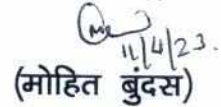 11/4/23.
(मोहित बुंदस)